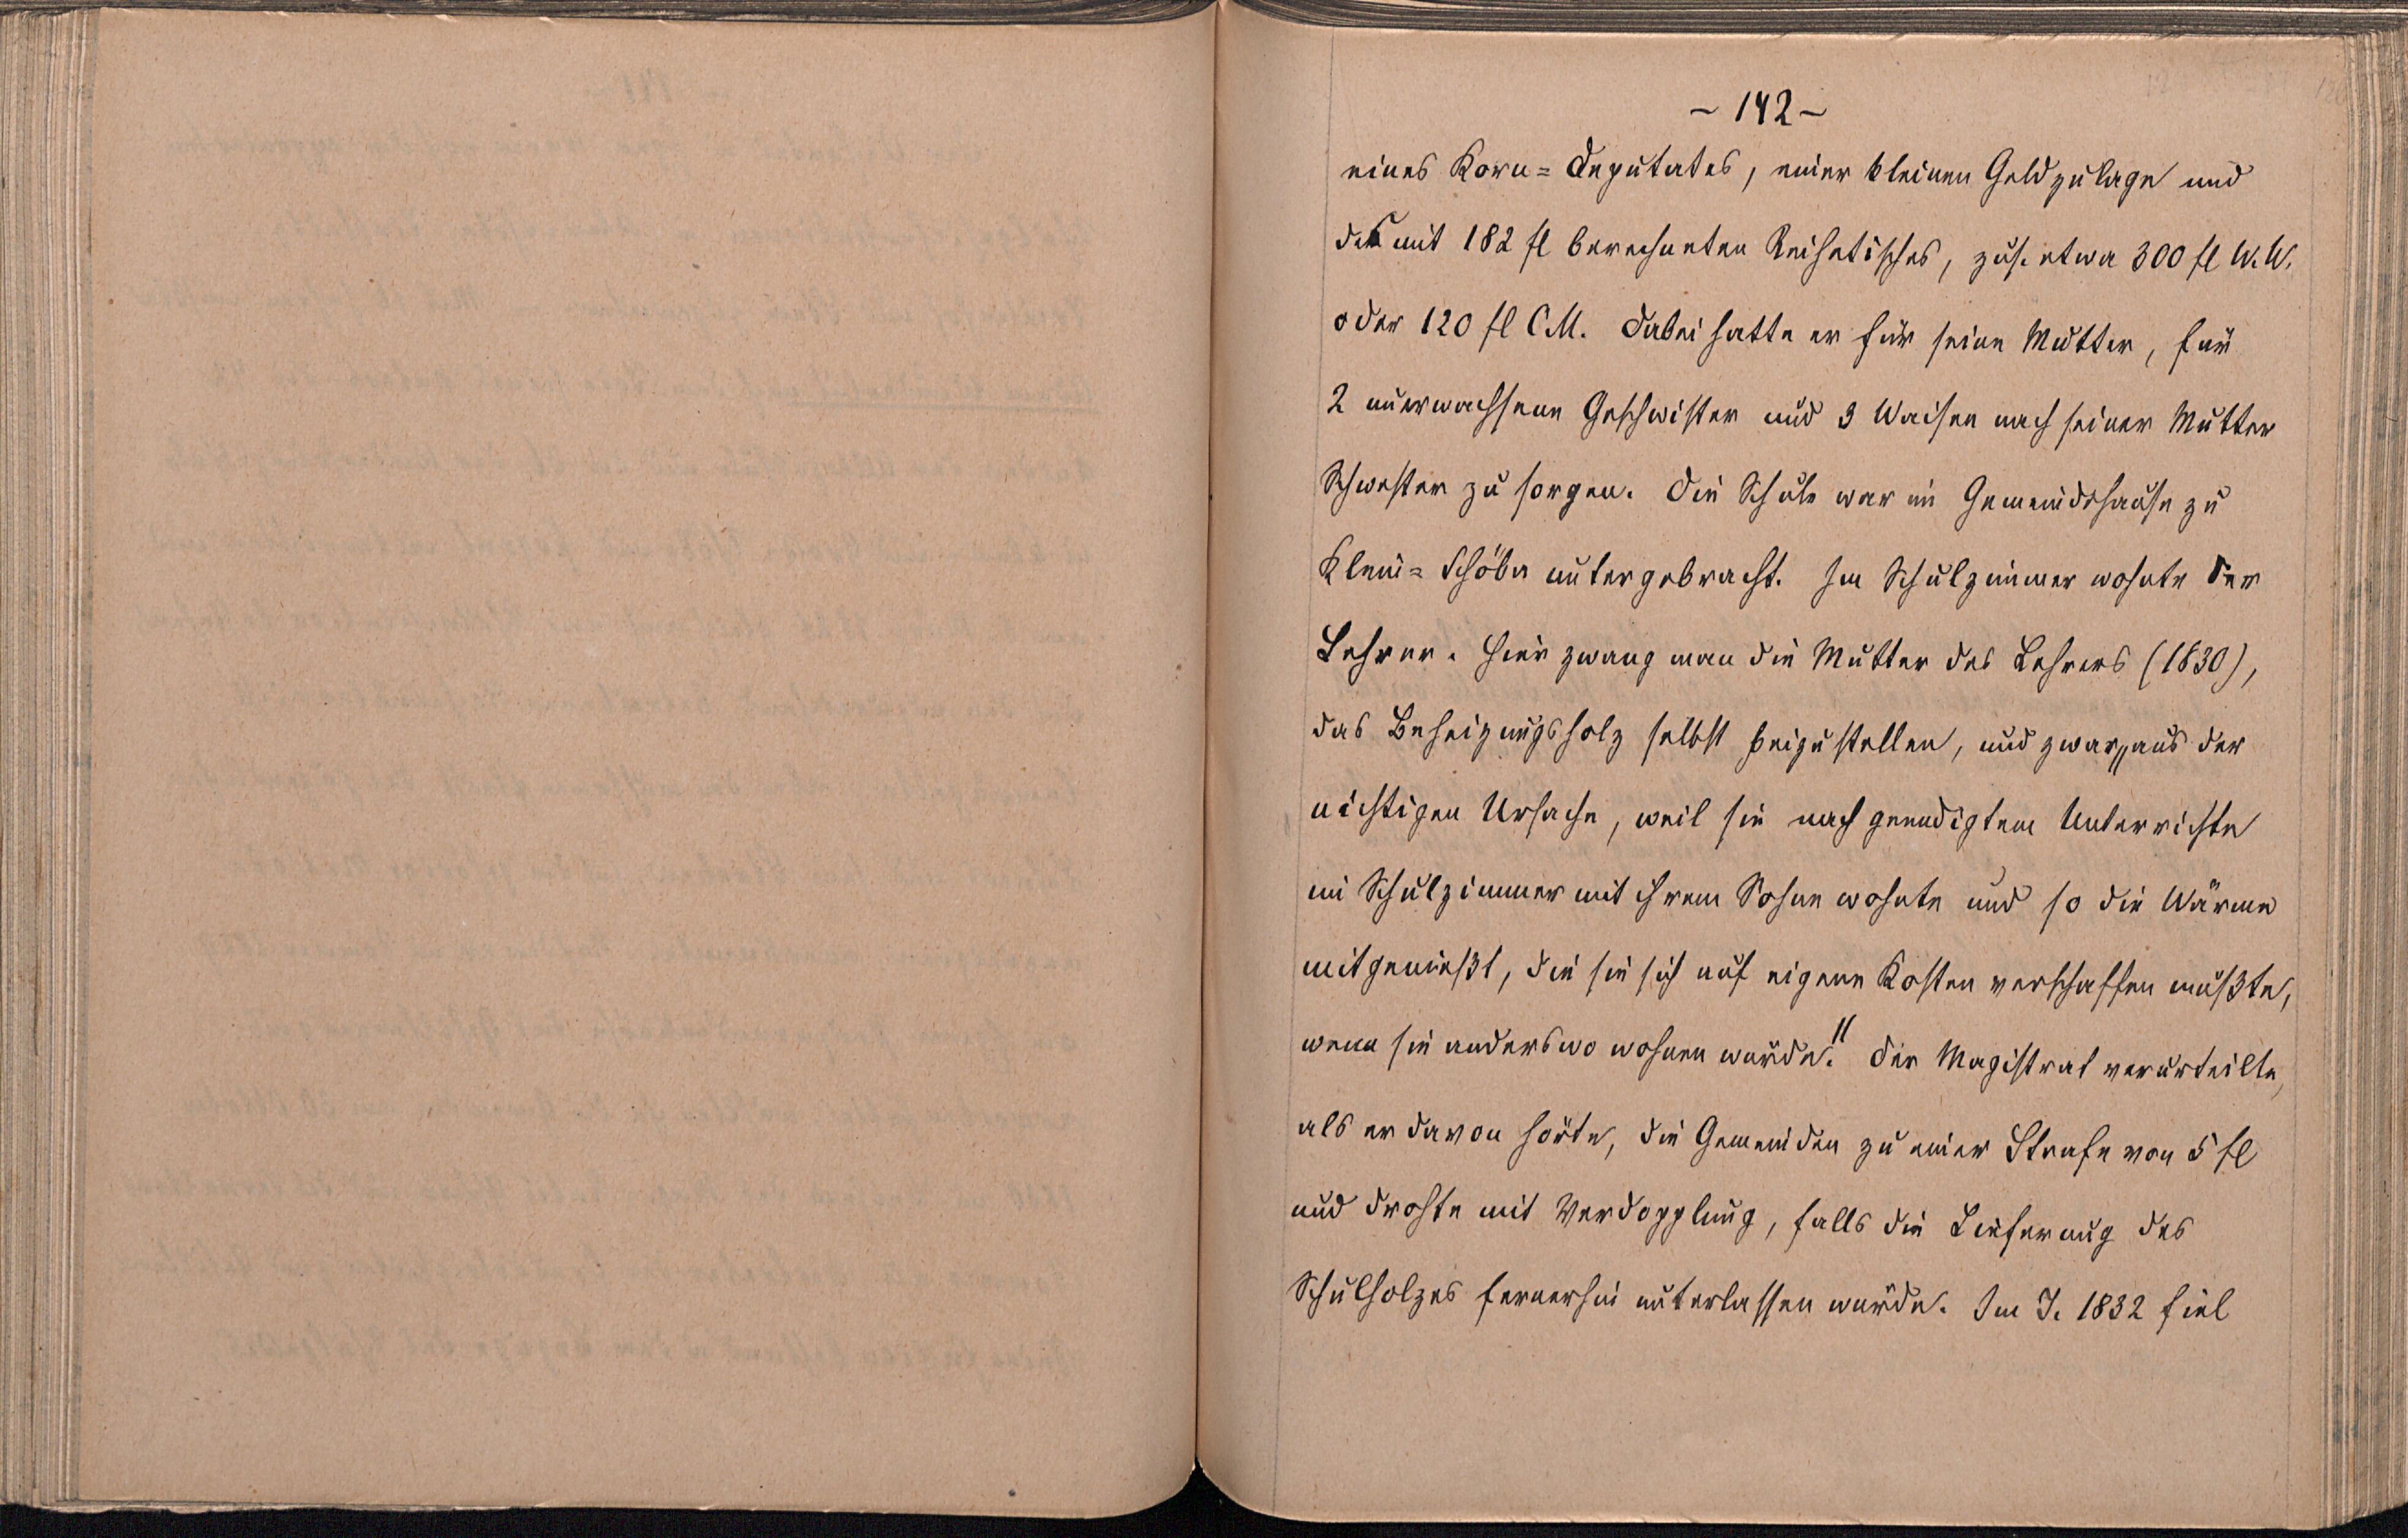 ~ 142 ~
eines Korn= Deputates, einer kleinen Geldzulage und
des mit 182 fl berechneten Reihetisches, zus. etwa 300 fl W. W.
oder 120 fl C. M. Dabei hatte er für seine Mutter, für
2 unerwachsene Geschwister und 3 Waisen nach seiner Mutter
Schwester zu sorgen. Die Schule war im Gemeindehause zu
Klein= Schöba untergebracht. Im Schulzimmer wohnte der
Lehrer. Hier zwang man die Mutter des Lehrers (1830),
das Beheizungsholz selbst beizustellen, und zwar „aus der
nichtigen Ursache, weil sie nach geendigtem Unterrichte
im Schulzimmer mit ihrem Sohne wohnte und so die Wärme
mitgenießt, die sie sich auf eigene Kosten verschaffen müßte,
wenn sie anderswo wohnen würde." Der Magistrat verurteilte,
als er davon hörte, die Gemeinden zu einer Strafe von 5 fl
und drohte mit Verdopplung, falls die Lieferung des
Schulholzes fernerhin unterlassen würde. Im J. 1832 fiel